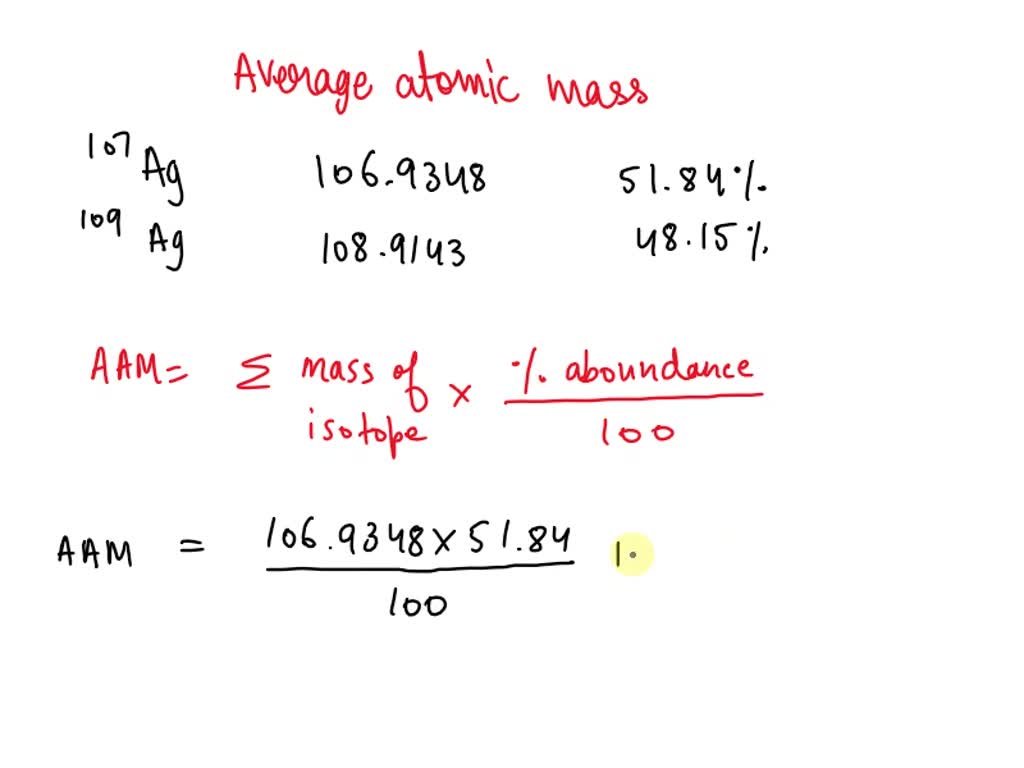 Average atomic mass
107 Ag 106.9348 51.84%.
109 Ag 108.9143 48.15%.
AAM = Σ mass of isotope × % aboundance / 100
AAM = 106.9348 × 51.84 / 100 1